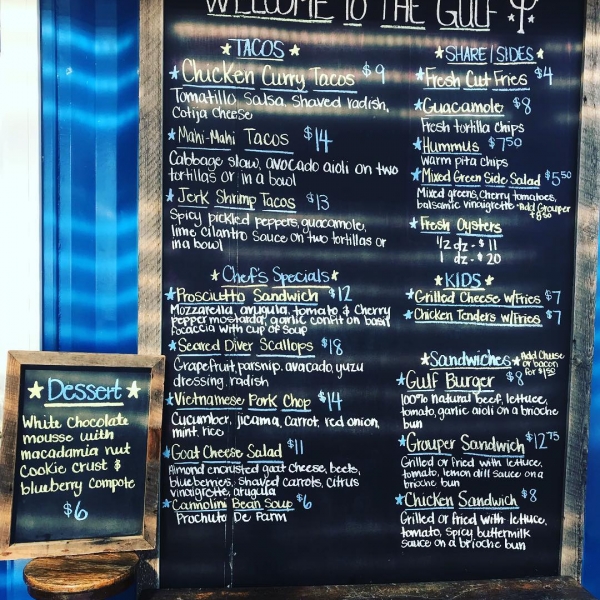 WELCOME TO THE GULF
TACOS
Chicken Curry Tacos $9
Tomatillo Salsa, Shaved radish,
Cotija Cheese
Mahi-Mahi Tacos $14
Cabbage slaw, avocado aioli on two
tortillas or in a bowl
Jerk Shrimp Tacos $13
Spicy pickled peppers, guacamole,
lime cilantro sauce on two tortillas or
in a bowl
Chef's Specials
Prosciutto Sandwich $12
Mozzarella, arugula, tomato & Cherry
pepper mostarda, garlic confit on basil
focaccia with cup of soup
Seared Diver Scallops $18
Grapefruit, parsnip, avocado, yuzu
dressing, radish
Vietnamese Pork Chop $14
Cucumber, jicama, carrot, red onion,
mint, rice
Goat Cheese Salad $11
Almond encrusted goat cheese, beets,
blueberries, shaved carrots, citrus
vinaigrette, arugula
Cannolini Bean Soup $6
Prochuto De Parm
SHARE/SIDES
Fresh Cut Fries $4
Guacamole $8
Fresh tortilla chips
Hummus $7.50
warm pita chips
Mixed Green Side Salad $5.50
Mixed greens, Cherry tomatoes,
balsamic vinaigrette *Add Grouper
+8.50
Fresh Oysters
1/2 dz - $11
1 dz - $20
KIDS
Grilled Cheese w/Fries $7
Chicken Tenders w/Fries $7
Sandwiches *Add Cheese
or bacon
for $1.50
Gulf Burger $8
100% natural beef, lettuce,
tomato, garlic aioli on a brioche
bun
Grouper Sandwich $12.75
Grilled or fried with lettuce,
tomato, lemon dill sauce on a
brioche bun
Chicken Sandwich $8
Grilled or fried with lettuce,
tomato, spicy buttermilk
sauce on a brioche bun
Dessert
White Chocolate
mousse with
macadamia nut
cookie crust &
blueberry compote
$6